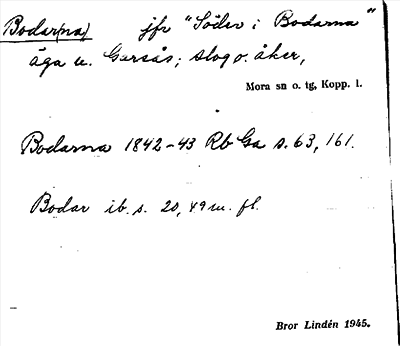 Bodar(na) jfr "Söder i Bodarna"
äga u. Garsås; slog o. åker,
Mora sn o. tg, Kopp. l.
Bodarna 1842-43 Rb Ga s. 63, 161.
Bodar ib. s. 20, 49 m. fl.
Bror Lindén 1945.